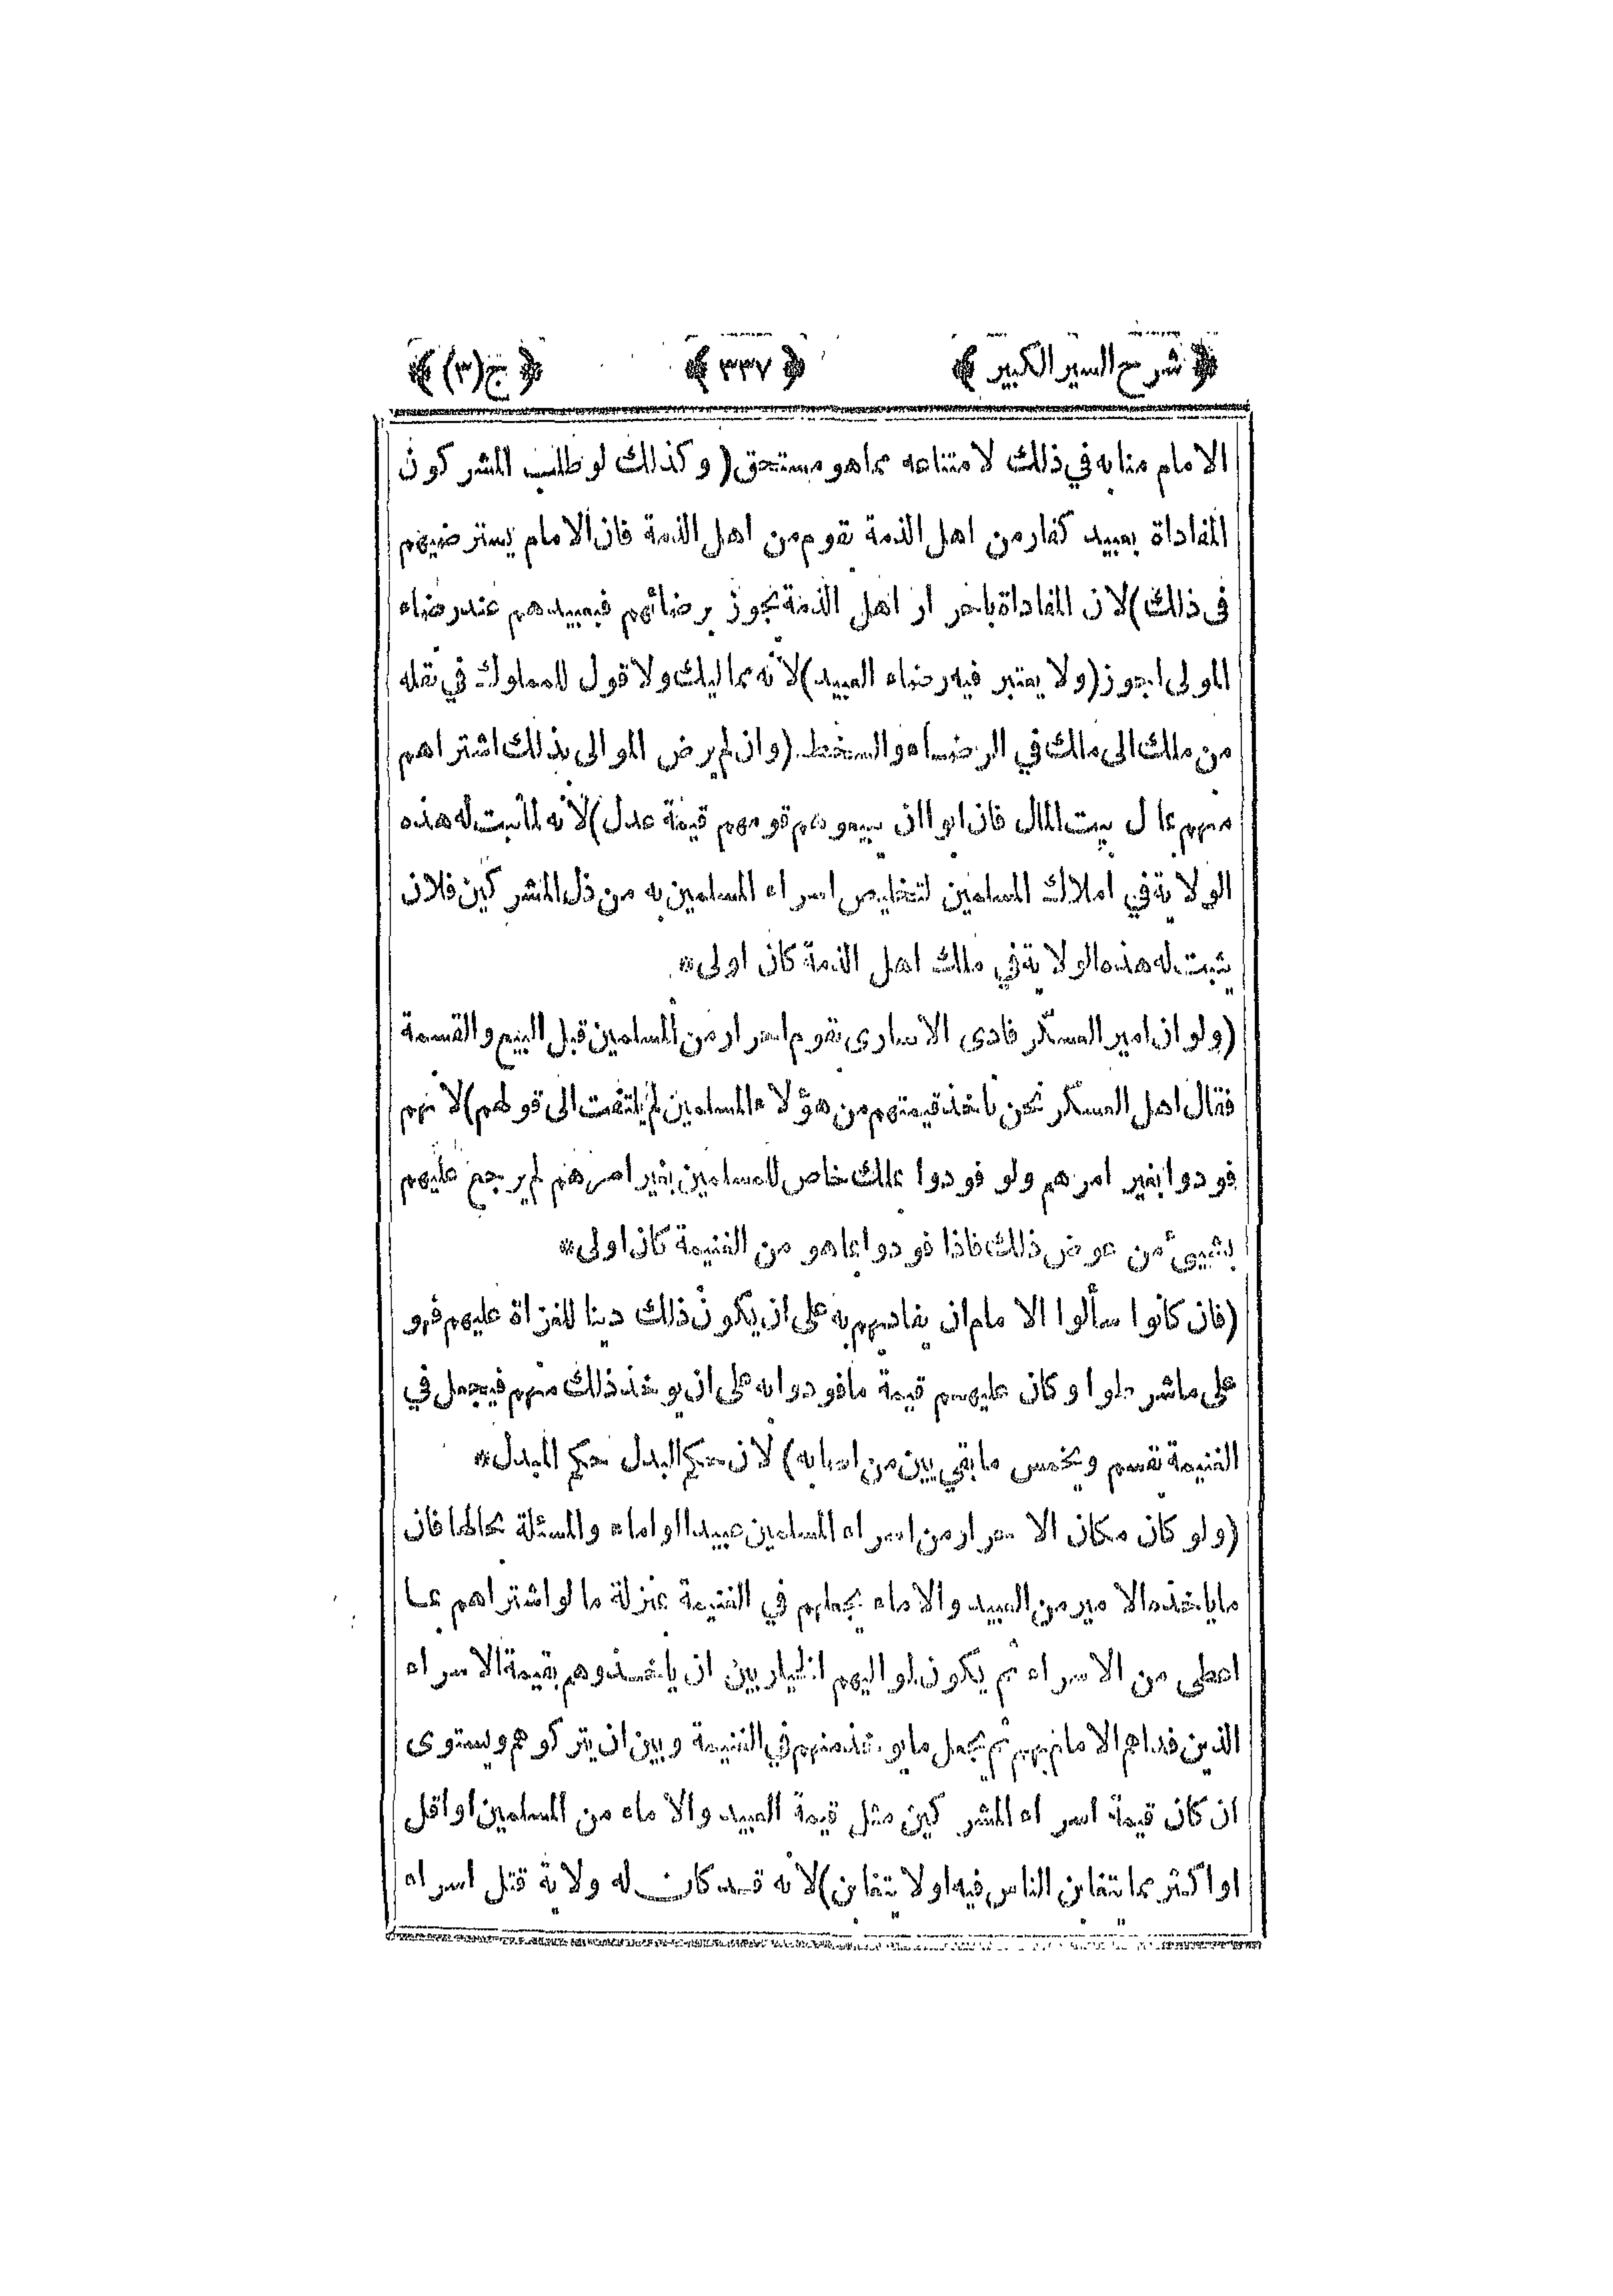 ﴿ شرح السير الكبير ﴾ ﴿ ٣٣٧ ﴾ ﴿ ج(٣) ﴾
الامام منابه في ذلك لامتناعه عما هو مستحق (وكذلك لو طلب المشركون
المفاداة بعبيد كفار من اهل الذمة بقوم من اهل الذمة فان الامام يسترضيهم
فى ذلك) لان المفاداة باحرار اهل الذمة يجوز برضائهم فبعبيدهم عند رضاء
المولى اجوز (ولا يعتبر فيه رضاء العبيد) لانه مماليك ولا قول للمملوك في نقله
من ملك الى ملك في الرضاء والسخط (وان لم يرض الموالى بذلك اشتراهم
منهم بمال بيت المال فان ابوا ان يبيعوهم قومهم قيمة عدل) لانه لما ثبت له هذه
الولاية في املاك المسلمين لتخليص اسراء المسلمين به من ذل المشركين فلان
يثبت له هذه الولاية في ملك اهل الذمة كان اولى*
(ولو ان امير العسكر فادى الاسارى بقوم احرار من المسلمين قبل البيع والقسمة
فقال اهل العسكر نحن ناخذ قيمتهم من هؤلاء المسلمين لم يلتفت الى قولهم) لانهم
فودوا بغير امرهم ولو فودوا بملك خاص للمسلمين بغير امرهم لم يرجع عليهم
بشيئ من عوض ذلك فاذا فودوا بما هو من الغنيمة كان اولى*
(فان كانوا سألوا الامام ان يفاديهم به على ان يكون ذلك دينا للغزاة عليهم فهو
على ما شرطوا وكان عليهم قيمة ما فودوا به على ان يوخذ ذلك منهم فيجعل في
الغنيمة تقسم ويخمس ما بقي بين من اصابه) لان حكم البدل حكم المبدل*
(ولو كان مكان الاحرار من اسراء المسلمين عبيدا او اماء والمسئلة بحالها فان
ما ياخذه الامير من العبيد والاماء يجعلهم في الغنيمة بمنزلة ما لو اشتراهم بما
اعطى من الاسراء ثم يكون لمواليهم الخيار بين ان ياخذوهم بقيمة الاسراء
الذين فداهم الامام بهم ثم يجعل ما يوخذ منهم في الغنيمة وبين ان يتركوهم ويستوى
ان كان قيمة اسراء المشركين مثل قيمة العبيد والاماء من المسلمين او اقل
او اكثر مما يتغابن الناس فيه او لا يتغابن) لانه قد كان له ولاية قتل اسراء